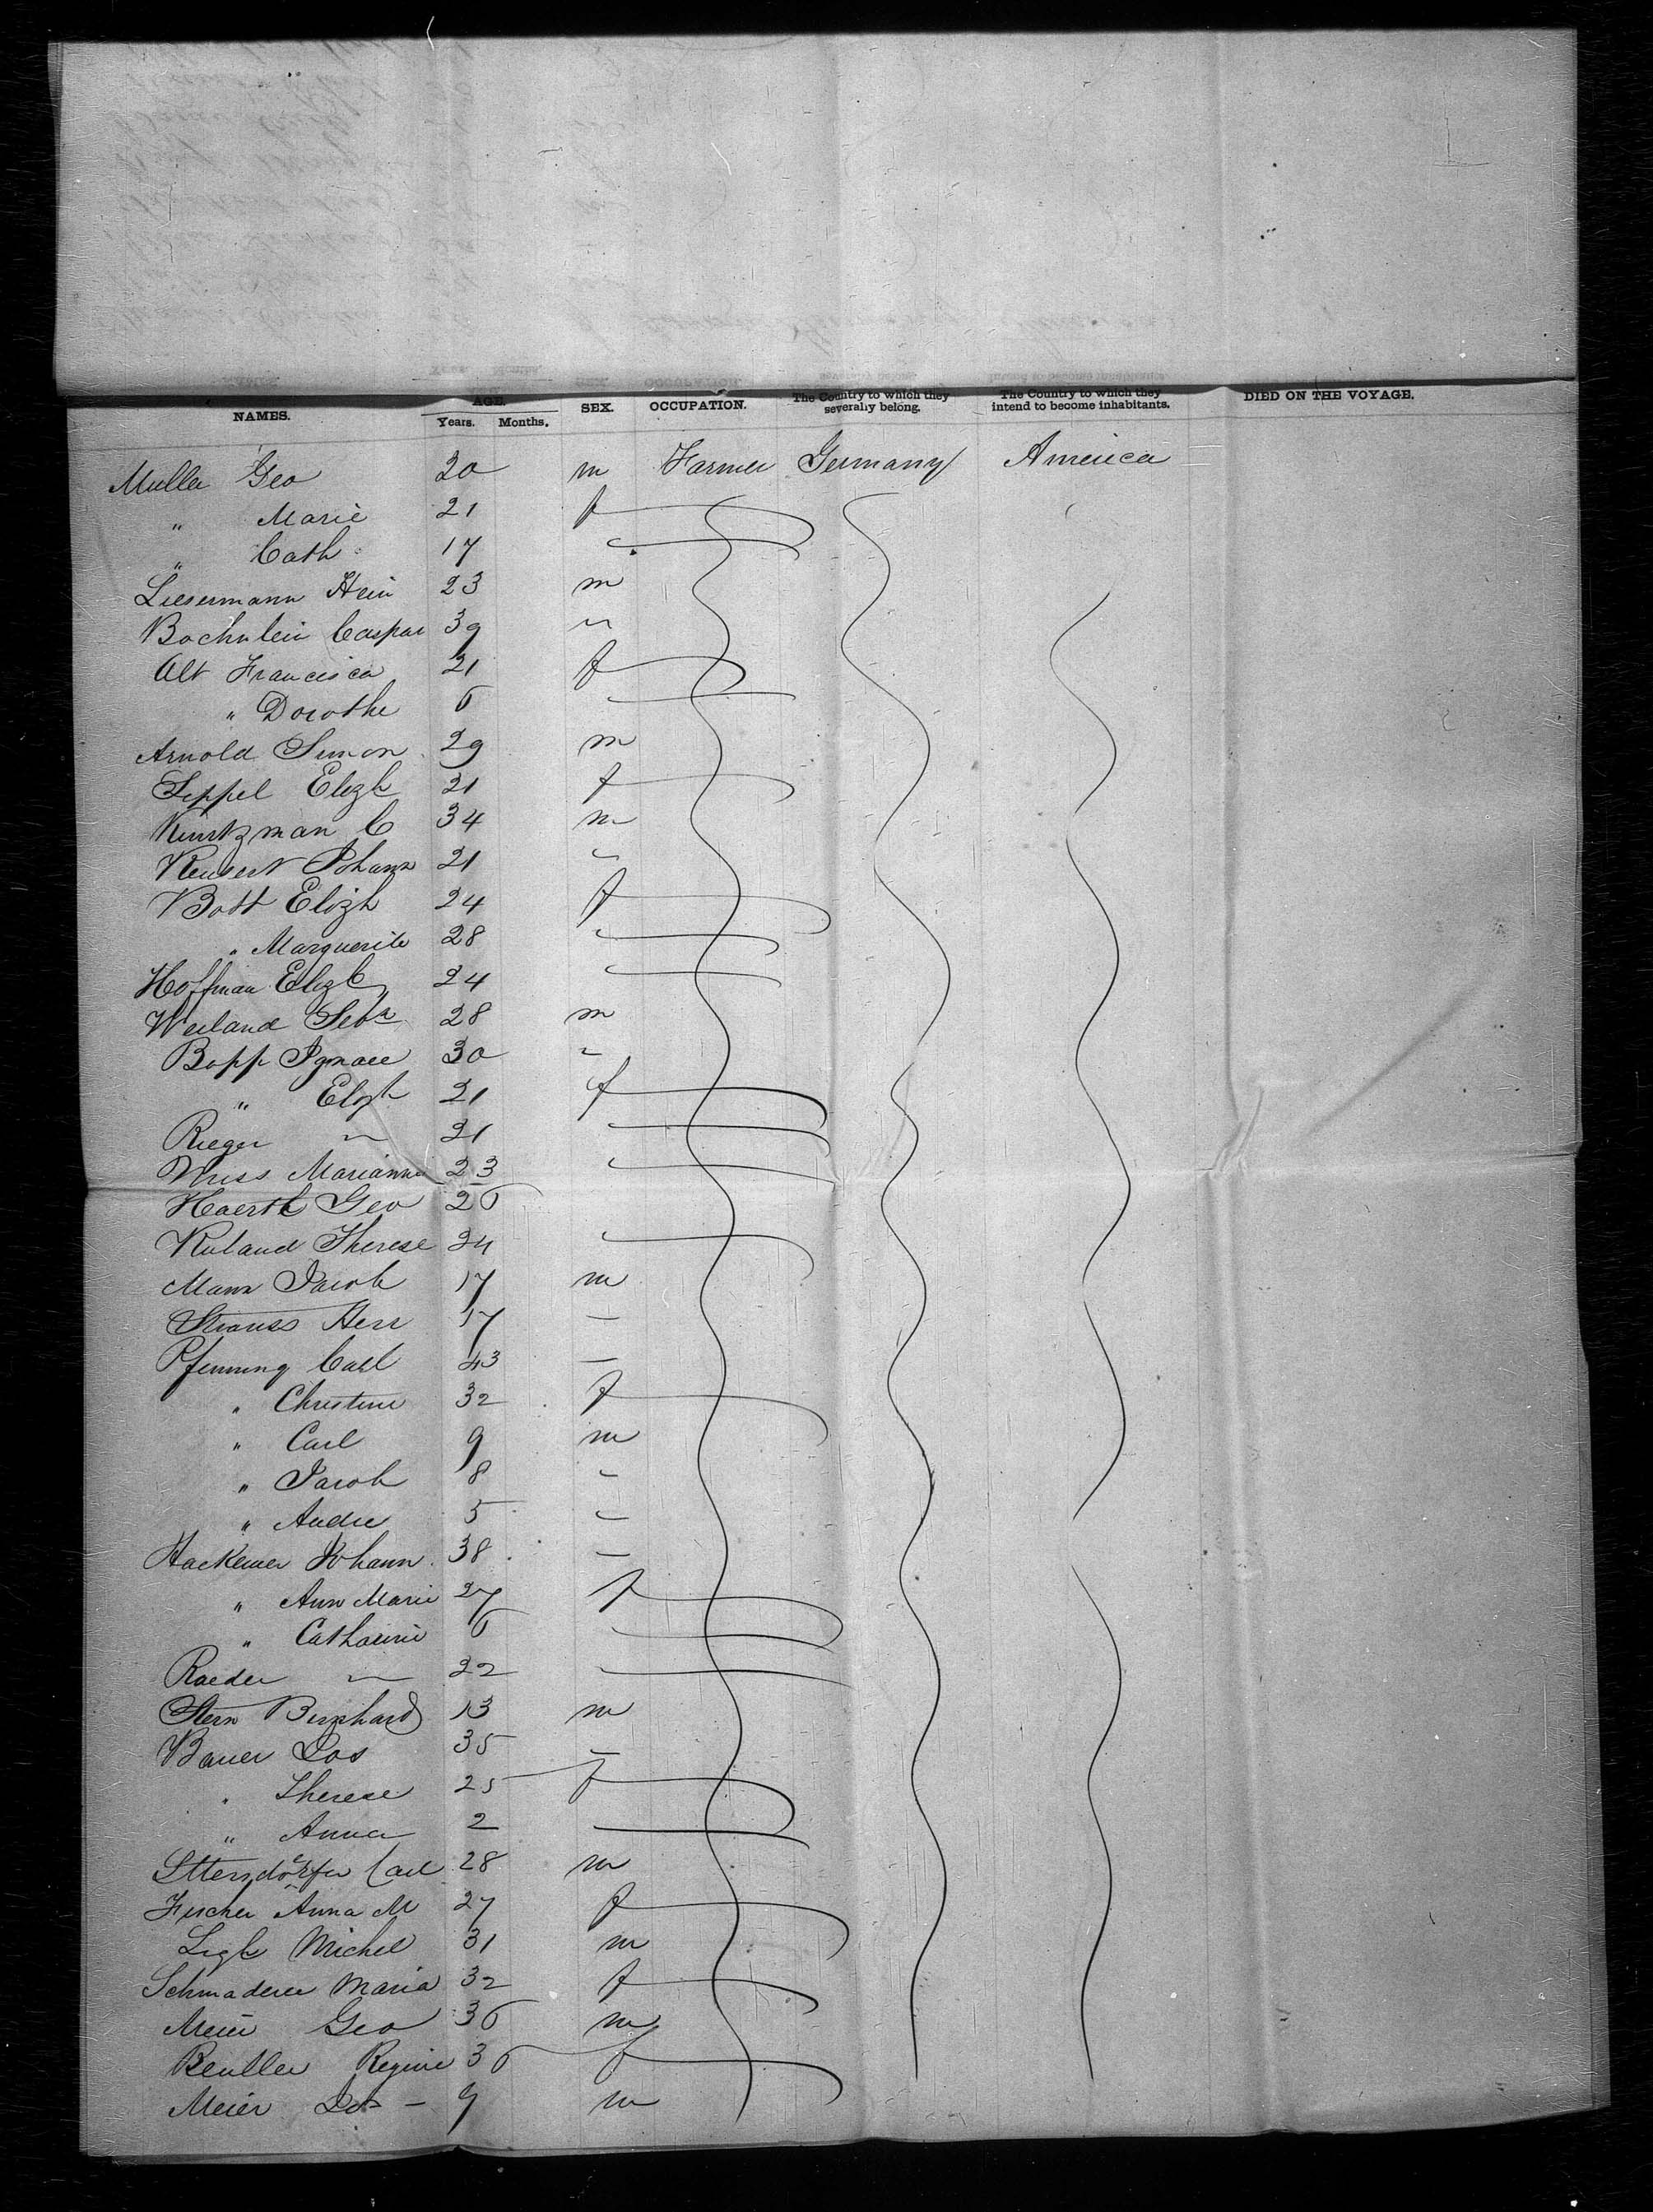 NAMES. AGE. Years. Months. SEX. OCCUPATION. The Country to which they severally belong. The Country to which they intend to become inhabitants. DIED ON THE VOYAGE.
Muller Geo 20 m Farmer Germany America
" Marie 21 f
" Cath 17
Liesermann Hein 23 m
Bachulein Caspar 39 "
Alt Francisca 21 f
" Dorothe 6
Arnold Simon 29 m
Seppel Elizh 21 f
Kuntzman C 34 m
Keusert Johann 21
Bott Elizh 24 f
" Marguerite 28
Hoffman Elizh 24
Weiland Seba 28 m
Bopp Ignace 30 "
" Elizh 21 f
Rieger " 21
Marianna 23
Haerth Geo 26
Ruland Therese 24
Mann Jacob 17 m
Strauss Herr 17 –
Pfenning Carl 43 –
" Christine 32 f
" Carl 9 m
" Jacob 8 –
" Andre 5 –
Hackemer Johann 38 –
" Ann Marie 27 f
" Catharine 6
Raeder " 22
Stern Bernhard 13 m
Bauer Jos 35 –
" Therese 25 f
" Anna 2
Carl 28 m
Fischer Anna M 27 f
Michel 31 m
Schmaderer Maria 32 f
Meier Geo 36 m
Beutler Regine 36 f
Meier Jos – 9 m